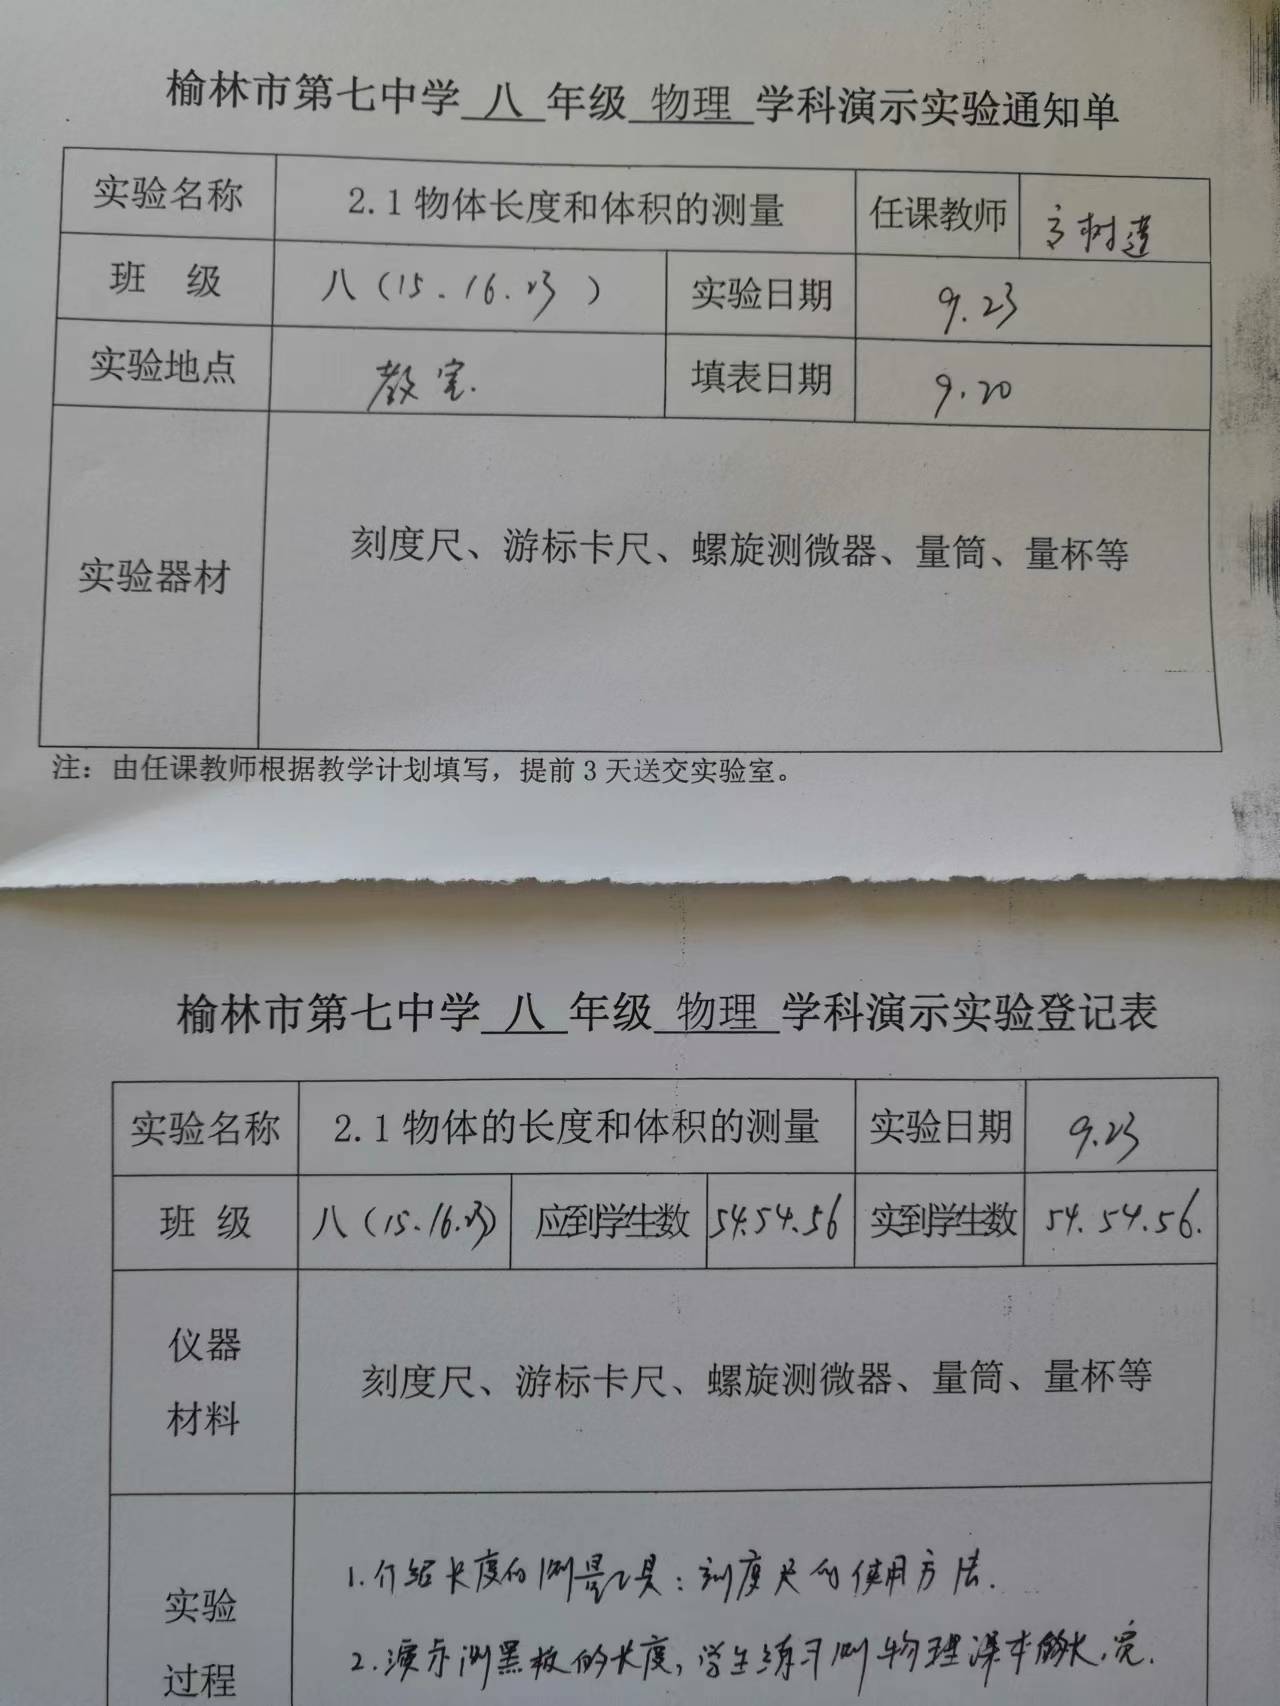 榆林市第七中学 八 年级 物理 学科演示实验通知单
实验名称 2.1物体长度和体积的测量 任课教师 树
班 级 八（15.16.23） 实验日期 9.23
实验地点 教室. 填表日期 9.20
实验器材 刻度尺、游标卡尺、螺旋测微器、量筒、量杯等
注：由任课教师根据教学计划填写，提前3天送交实验室。
榆林市第七中学 八 年级 物理 学科演示实验登记表
实验名称 2.1物体的长度和体积的测量 实验日期 9.23
班 级 八（15.16.23） 应到学生数 54.54.56 实到学生数 54.54.56.
仪器
材料
刻度尺、游标卡尺、螺旋测微器、量筒、量杯等
实验
过程
1.介绍长度的测量工具：刻度尺的使用方法.
2.演示测黑板的长度，学生练习测物理课本的长.宽.